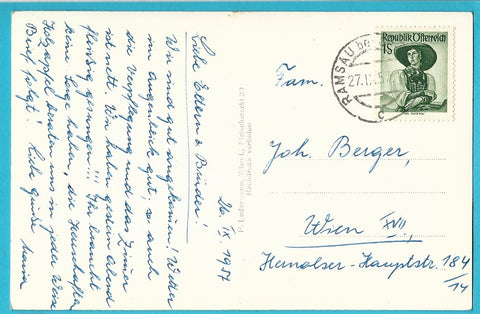 26. IX. 1957
Liebe Eltern u. Brüder!
Wir sind gut angekommen! Wetter
im Augenblick gut, so auch
die Verpflegung und das Zimmer
ist nett. Wir haben gestern abend
fleissig gesungen!!! Ihr braucht
keine Sorge haben, die Herrschaften
Holzapfel beraten uns in jeder Weise
Brief folgt! Liebe Grüße
P. Ledermann, Wien I., Fleischmarkt 20
Nachdruck verboten
RAMSAU
27.IX.5
Republik Österreich
1S
Fam.
Joh. Berger,
Wien XVII,
Hernalser-Hauptstr. 184
/14